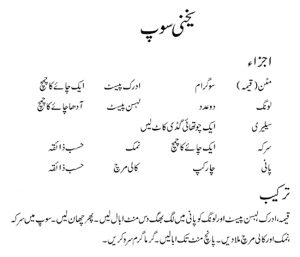 یخنی سوپ
اجزاء
مٹن (قیمہ) سو گرام ادرک پیسٹ ایک چائے کا چمچ
لونگ دو عدد لہسن پیسٹ آدھا چائے کا چمچ
سیلیری ایک چوتھائی گڈی کاٹ لیں
سرکہ ایک چائے کا چمچ نمک حسب ذائقہ
پانی چار کپ کالی مرچ حسب ذائقہ
ترکیب
قیمہ، ادرک لہسن پیسٹ اور لونگ کو پانی میں لگ بھگ دس منٹ ابال لیں۔ پھر چھان لیں۔ سوپ میں سرکہ
نمک اور کالی مرچ ملا دیں۔ پانچ منٹ تک ابالیں۔ گرما گرم سرو کریں۔